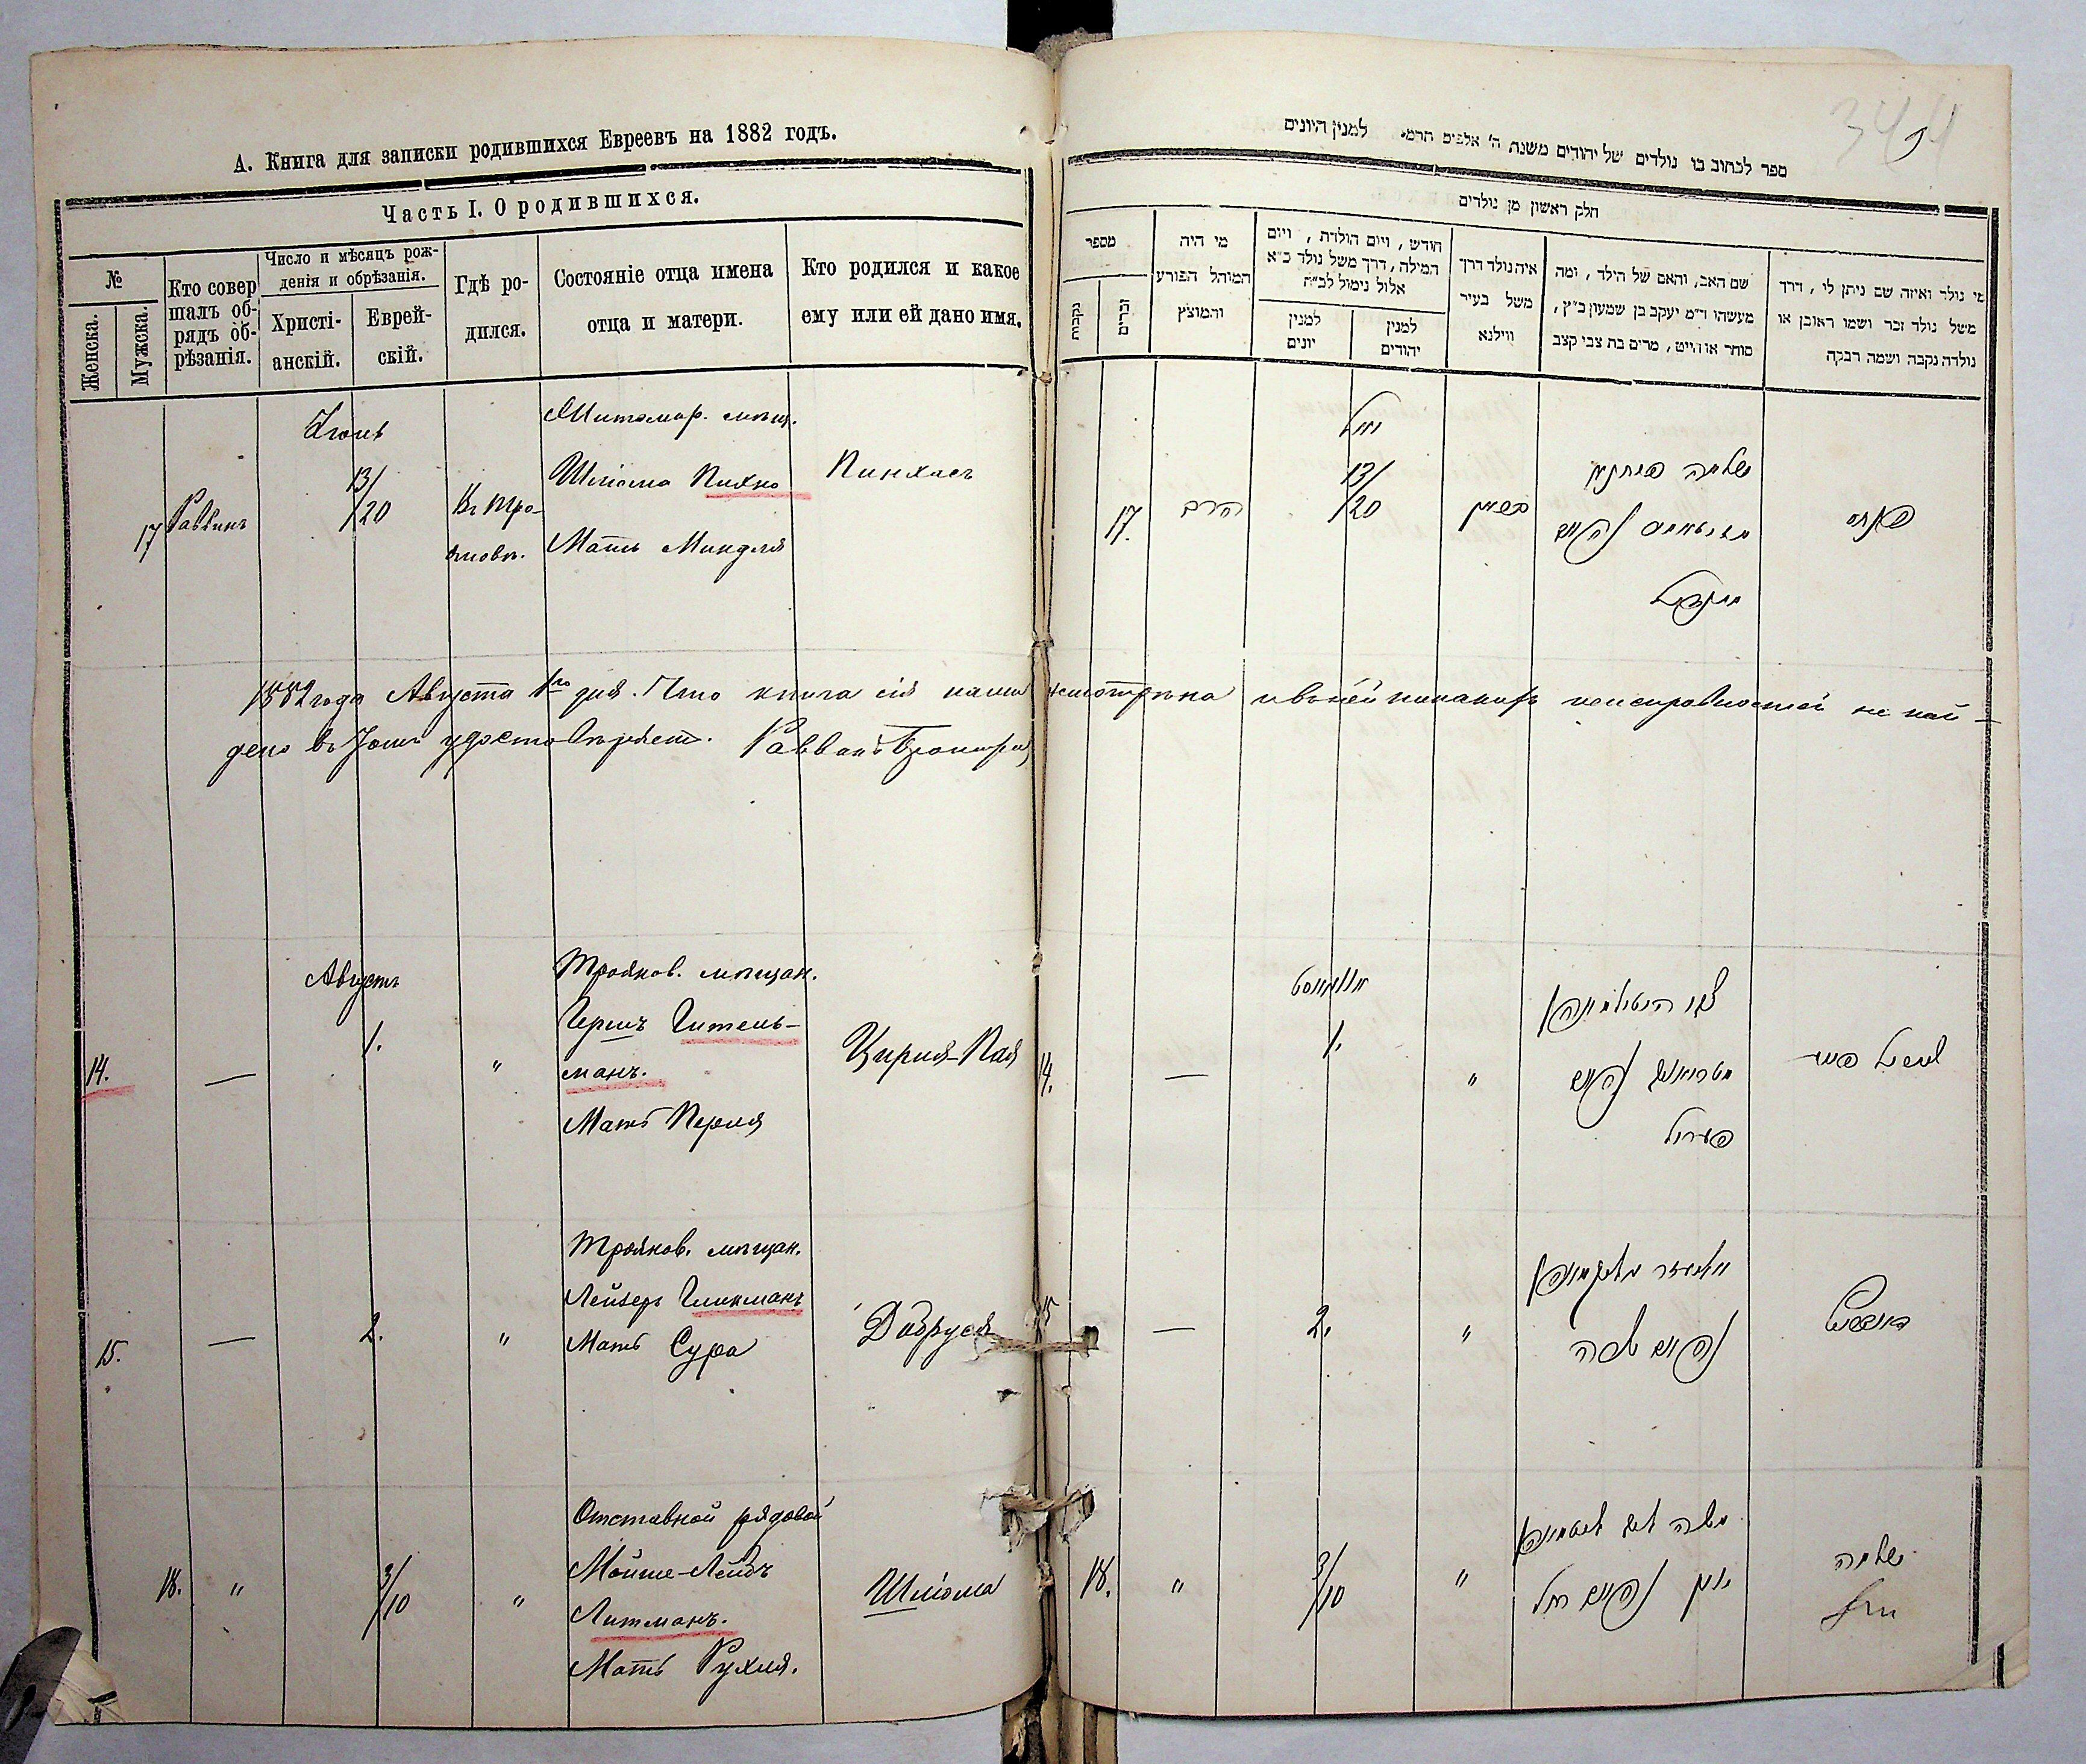 А. Книга для записки родившихся Евреевъ на 1882 годъ.
Часть I. О родившихся.
№
Женска.
Мужска.
Кто совер
шалъ об-
рядъ об-
рѣзанія.
Число и мѣсяцъ рож-
денія и обрѣзанія.
Христі-
анскій.
Еврей-
скій.
Гдѣ ро-
дился.
Состояніе отца имена
отца и матери.
Кто родился и какое
ему или ей дано имя.
17
Раввинъ
13/20
Житомир. мѣщ.
Шліома Пихно
Мать Миндля
Пинхасъ
1882 года Августа 1го дня. Что книга сія нами осмотрѣна и въ ней никакихъ неисправностей не най-
дено въ томъ удостовѣряетъ. Раввинъ
14.
—
Августъ
1.
"
Трояков. мѣщан.
Гершъ Гитель-
манъ.
Мать Перля
Цирия-Пая
15.
—
2.
"
Трояков. мѣщан.
Лейзеръ Гликманъ
Мать Сура
Добруся
18.
"
3/10
"
Отставной рядовой
Мойше-Лейбъ
Литманъ.
Мать Рухля.
Шліома
344
ספר לכתוב בו נולדים של יהודים משנת ה' אלפים תרמ״ למנין היונים
חלק ראשון מן נולדים
מספר
נקבות
זכרים
מי היה
המוהל הפורע
והמוצץ
חודש, ויום הולדת, ויום
המילה, דרך משל נולד כ״א
אלול נימול לכ״ח
למנין
יונים
למנין
יהודים
איה נולד דרך
משל בעיר
ווילנא
שם האב, והאם של הילד, ומה
מעשהו ד״מ יעקב בן שמעון כ״ץ,
סוחר או חייט, מרים בת צבי קצב
מי נולד ואיזה שם ניתן לו, דרך
משל נולד זכר ושמו ראובן או
נולדה נקבה ושמה רבקה
17.
13/20
שלמה
פנחס
אוגוסט
14.
—
1.
"
צבי היטילמאן
פערל
15
—
2.
"
שרה
18.
"
3/10
"
משה ליב ליטמאן
רחל
שלמה